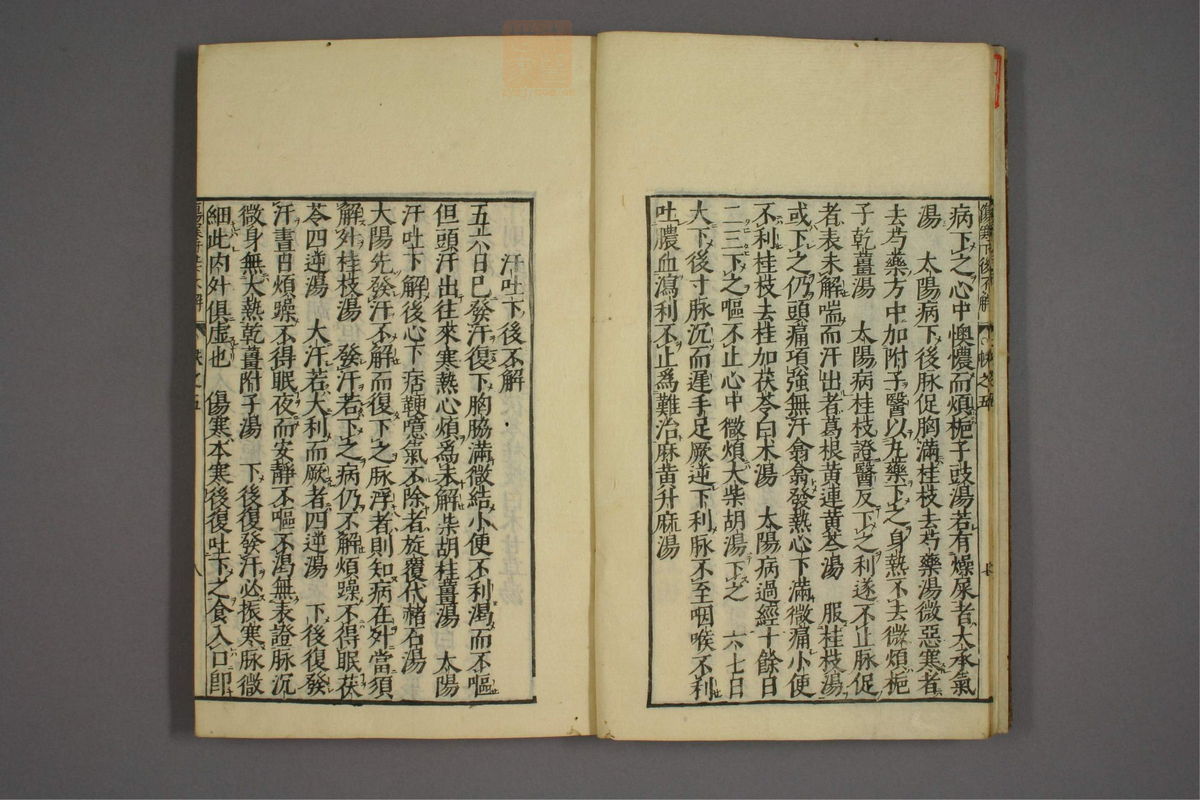 病下之心中懊憹而煩梔子豉湯若有燥屎者大承氣
湯　太陽病下後脉促胸滿桂枝去芍藥湯微惡寒者
去芍藥方中加附子醫以丸藥下之身熱不去微煩梔
子乾薑湯　太陽病桂枝證醫反下之利遂不止脉促
者表未解喘而汗出者葛根黄連黄芩湯　服桂枝湯
或下之仍頭痛項強無汗翕翕發熱心下滿微痛小便
不利桂枝去桂加茯苓白术湯　太陽病過經十餘日
二三下之嘔不止心中微煩大柴胡湯下之　六七日
大下後寸脉沉而遲手足厥逆下利脉不至咽喉不利
吐膿血瀉利不止爲難治麻黄升麻湯
汗吐下後不解
五六日已發汗復下胸脇滿微結小便不利渴而不嘔
但頭汗出往來寒熱心煩爲未解柴胡桂薑湯　太陽
汗吐下解後心下痞鞕噫氣不除者旋覆代赭石湯
大陽先發汗不解而復下之脉浮者則知病在外當須
解外桂枝湯　發汗若下之病仍不解煩躁不得眠茯
苓四逆湯　大汗若大利而厥者四逆湯　下後復發
汗晝日煩躁不得眠夜而安靜不嘔不渴無表證脉沉
微身無大熱乾薑附子湯　下後復發汗必振寒脉微
細此内外俱虛也　傷寒本寒後復吐下之食入口卽